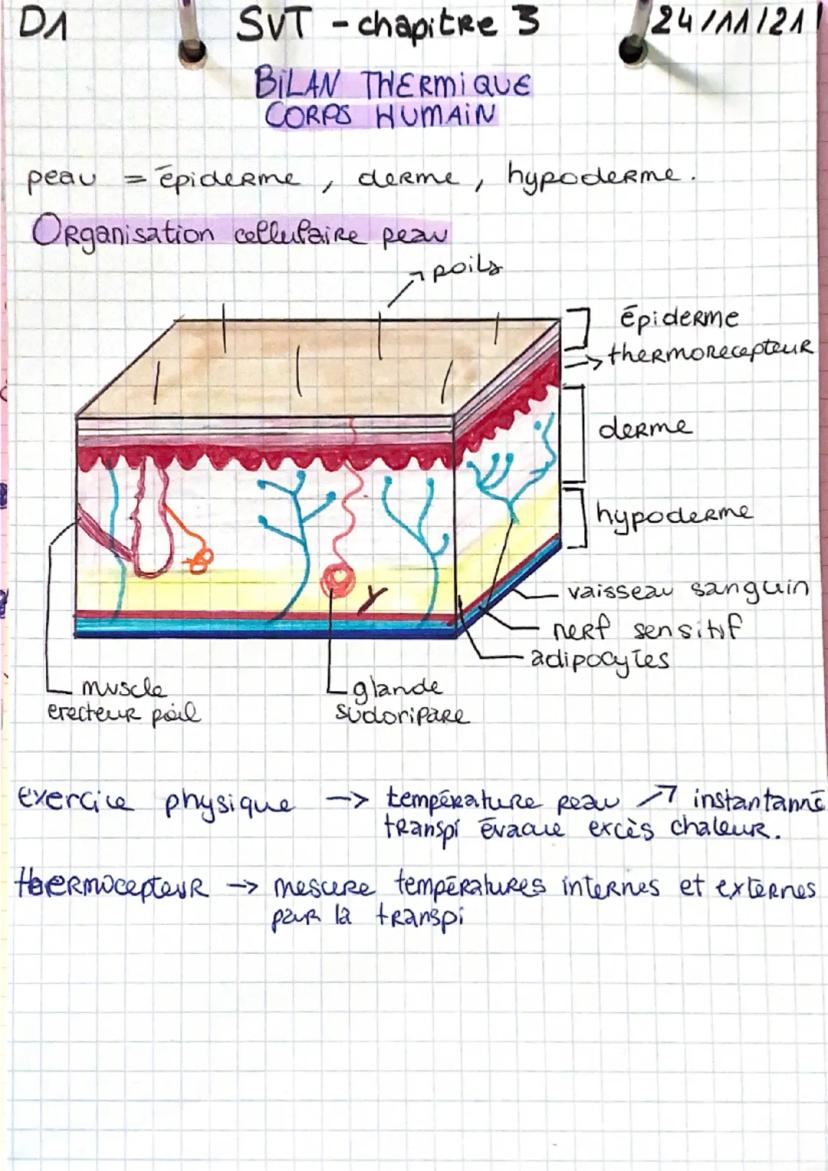 D1 SVT - chapitre 3 24/11/21
BILAN THERMIQUE
CORPS HUMAIN
peau = épiderme, derme, hypoderme.
Organisation cellulaire peau
poils
épiderme
thermorecepteur
derme
hypoderme
vaisseau sanguin
nerf sensitif
adipocytes
muscle
erecteur poil
glande
sudoripare
exercice physique → température peau ↗ instantanné
transpi évacue excès chaleur.
thermocepteur → mesure températures internes et externes
par la transpi